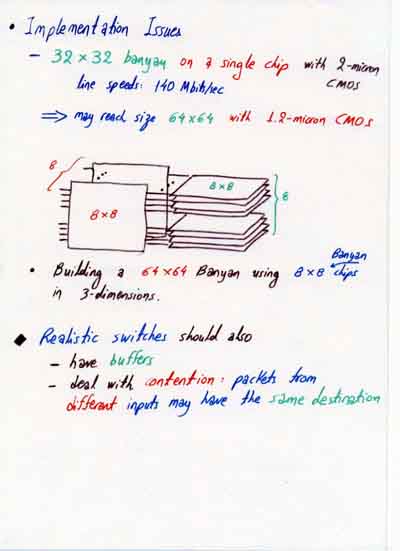 • Implementation Issues
– 32 × 32 banyan on a single chip with 2-micron CMOS
line speeds: 140 Mbits/sec
⇒ may reach size 64×64 with 1.2-micron CMOS
8
8×8
8
8×8
• Building a 64×64 Banyan using 8×8 Banyan chips
in 3-dimensions.
◆ Realistic switches should also
– have buffers
– deal with contention: packets from
different inputs may have the same destination